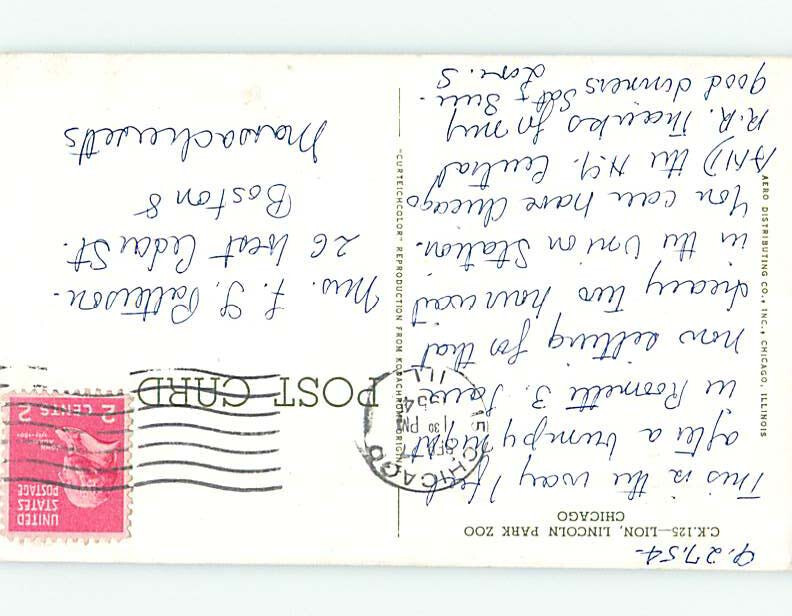 9.27.54.
C.K.125—LION, LINCOLN PARK ZOO
CHICAGO
This is the way I feel
after a bumpy night
in Roomette 3. Sauce
now settling for that
dreary two hour wait
in the Union Station.
You can have Chicago
AND the N.Y. Central
R.R. Thanks for my
good dinners Sat & Sun.
Love. S
AERO DISTRIBUTING CO., INC., CHICAGO, ILLINOIS
"CURTEICHCOLOR" REPRODUCTION FROM KODACHROME ORIGINAL
POST CARD
CHICAGO
SEP 27
1 30 PM
54
ILL
UNITED
STATES
POSTAGE
JOHN
2 CENTS 2
Mrs. F. G. Patterson.
26 West Cedar St.
Boston 8
Massachusetts